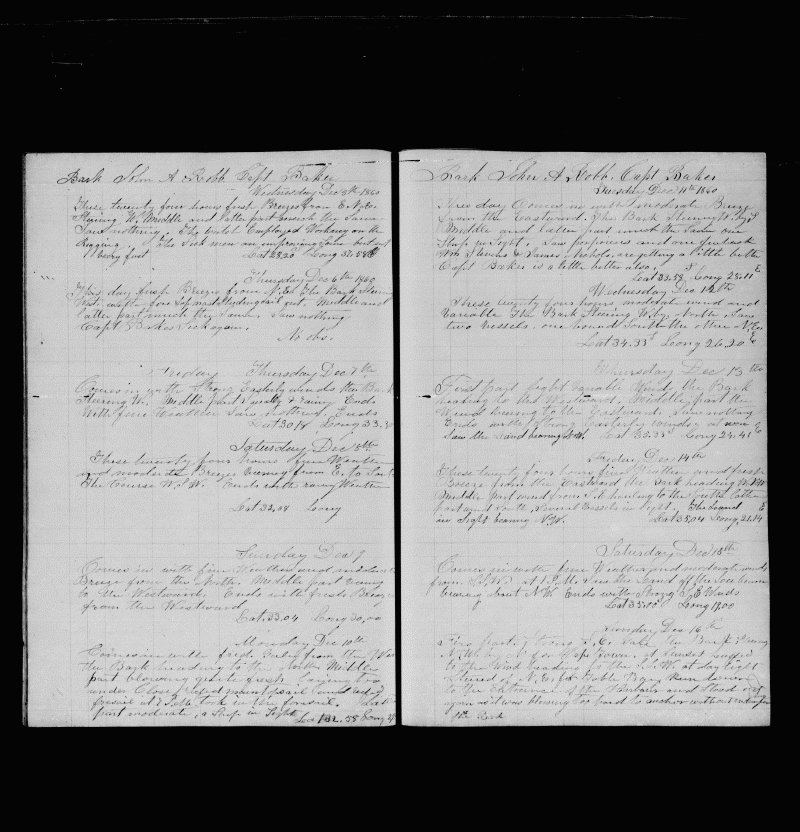 Bark John A Robb Capt Baker
Wednesday Dec 5th 1860
These twenty four hours first Breeze from E.N.E.
Steering W. Middle and latter part much the Same
Saw nothing. The watch Employed Working on the
Rigging. The Sick men an improving Some but not
very fast Lat 28,20 Long
Thursday Dec 6th 1860
This day fresh Breeze from N.E. The Bark Steering
West Middle and
latter part much the Same. Saw nothing
Capt Baker Sick again.
No obs.
Friday Thursday Dec 7th
Comes in with Strong Easterly winds the Bark
Steering W. Middle part Squally & rainy Ends
With fine Weather Saw nothing. Ends
Lat 30,18 Long 33,30
Saturday Dec 8th
These twenty four hours fine Weather
and moderate Breeze from E. to South
The Course W.S.W. Ends with rainy Weather
Lat 32,08 Long
Sunday Dec 9
Comes in with fine Weather and moderate
Breeze from the North. Middle part
to the Westward. Ends with fresh Breeze
from the Westward
Lat 33,04 Long 30,00
Monday Dec 10th
Comes in with fresh Gale from the
the Bark heading to the North Middle
part blowing quite fresh Laying too
under Close reefed
foresail at 7 P.M. took in the foresail. Latter
part moderate, a Ship in Sight Long
Bark John A Robb. Capt Baker
Tuesday Dec 11th 1860
This day Comes in with moderate Breeze
from the Eastward. The Bark Steering W. by S
Middle and latter part much the Same one
Ship in Sight. Saw porpoises and one finback
Wm Stevens & James Nichols are getting a little better
Capt Baker is a little better also.
Lat 33.58 S Long 28.11 E
Wednesday Dec 12th
These twenty four hours moderate wind and
variable The Bark Steering W. by North. Saw
two vessels, one bound South the other
Lat 34.33 S Long 26.20 E
Thursday Dec 13th
First part light variable Wind, the Bark
heading to the Westward. Middle part the
Wind to the Eastward. Saw nothing
Ends with Strong Easterly winds at
Saw the Land bearing Long 24.41 E
Friday Dec 14th
These twenty four hours fine Weather and fresh
Breeze from the Eastward the Bark heading W.N.W
Middle part wind from S.E. hauling to the South latter
part Several vessels in Sight. The Land
in Sight bearing N.W. Lat 35.04 Long, 21.14 E
Saturday Dec 15th
Comes in with fine Weather and moderate winds
from S.W. at 1 P.M. Saw the Land off the
bearing about N.W Ends with Strong S.E Winds
Lat 35.00 Long 19.00
Sunday Dec 16th
First part Strong S.E. Gale the Bark Steering
N.W. by N for Cape Town, at Sunset luffed
to the Wind heading to the S.S.W. at day light
Steered N.E. for Table Bay, Run down
to the Entrance of the Harbour and Stood off
again as it was blowing too hard to anchor without
the Bark